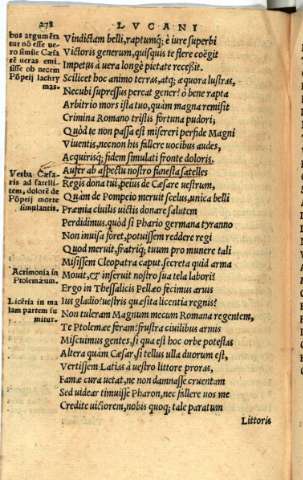 278 LVCANI
bus argumēta
tur nō esse ue-
ro simile Cæsa
rē ueras emi-
sisse ob necem
Pōpeij lachry
mas.
Vindictam belli, raptumq; è iure superbi
Victoris generum, quisquis te flere coëgit
Impetus à uera longè pietate recessit.
Scilicet hoc animo terras, atq; æquora lustras,
Necubi suppressus pereat gener: ô bene rapta
Arbitrio mors ista tuo, quam magna remisit
Crimina Romano tristis fortuna pudori,
Quòd te non passa est misereri perfide Magni
Viuentis, necnon his fallere uocibus audes,
Acquirisq; fidem simulati fronte doloris.
Verba Cæsa-
ris ad satelli-
tem, dolorē de
Pōpeij morte
simulantis.
Aufer ab aspectu nostro funesta satelles
Regis dona tui, peius de Cæsare uestrum,
Quàm de Pompeio meruit scelus, unica belli
Præmia ciuilis uictis donare salutem
Perdidimus. quòd si Phario germana tyranno
Non inuisa foret, potuissem reddere regi
Quod meruit, fratriq; tuum pro munere tali
Misissem Cleopatra caput. secreta quid arma
Acrimonia in
Ptolemæum.
Mouit, & inseruit nostro sua tela labori?
Ergo in Thessalicis Pellæo fecimus aruis
Licētia in ma
lam partem su
mitur.
Ius gladio? uestris quæsita licentia regnis?
Non tuleram Magnum mecum Romana regentem,
Te Ptolemæe feram? frustra ciuilibus armus
Miscuimus gentes, si qua est hoc orbe potestas
Altera quàm Cæsar, si tellus ulla duorum est,
Vertissem Latias à uestro littore proras,
Famæ cura uetat, ne non damnasse cruentam
Sed uidear timuisse Pharon, nec fallere uos me
Credite uictorem, nobis quoq; tale paratum
Littoris